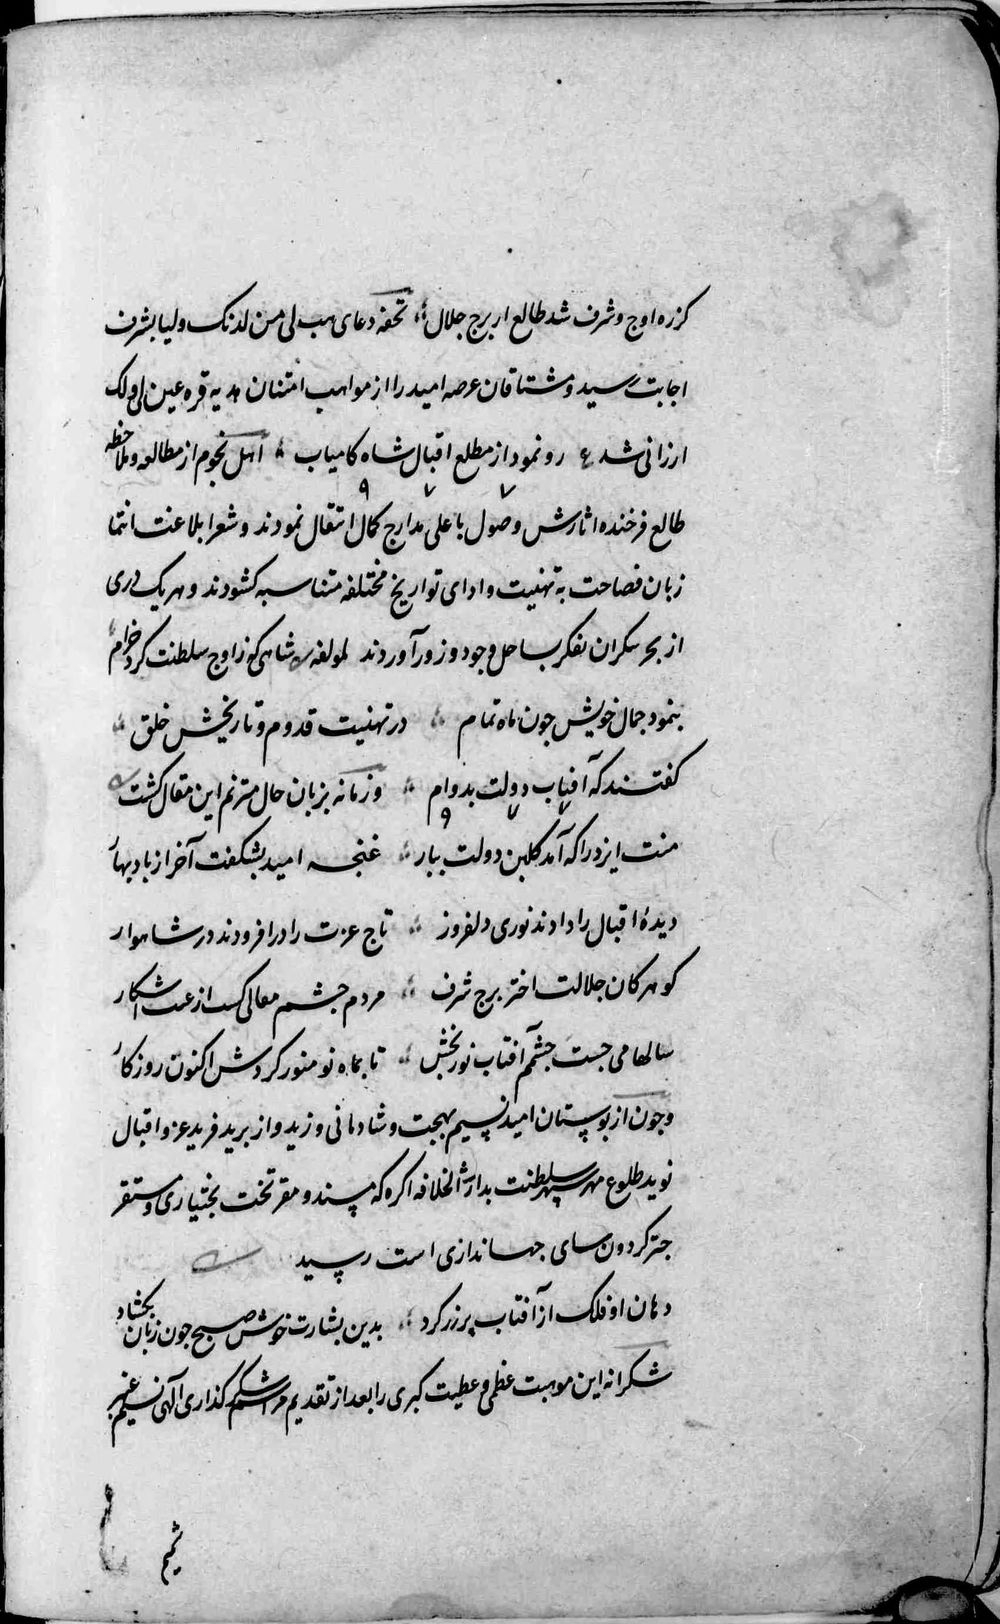 کز ره اوج و شرف شد طالع از برج جلال ؛ تحفه دعای هب لی من لدنک ولیا بشرف
اجابت رسید و مشتاقان عرصه امید را از مواهب امتنان هدیه قره عین لی ولک
ارزانی شد ع رو نمود از مطلع اقبال شاه کامیاب ؛ اهل نجوم از مطالعه و ملاحظه
طالع فرخنده اثارش وصول باعلی مدارج کمال انتقال نمودند و شعرا بلاغت انتما
زبان فصاحت به تهنیت و ادای تواریخ مختلفه متناسبه کشودند و هر یک دری
از بحر بیکران تفکر بساحل وجود و زور آوردند لمولفه شاهی که ز اوج سلطنت کرد خرام
بنمود جمال خویش جون ماه تمام ؛ در تهنیت قدوم و تاریخش خلق ؛
کفتند که آفتاب دولت بدوام ؛ و زمانه بزبان حال مترنم این مقال کشت
منت ایزد را که آمد کلبن دولت ببار ؛ غنجه امید بشکفت آخر از باد بهار
دیدهٔ اقبال را دادند نوری دلفروز ؛ تاج عزت را در افزودند در شاهوار
کوهر کان جلالت اختر برج شرف ؛ مردم جشم معالی کست از عت اشکار
سالها می جست جشم آفتاب نوربخش ؛ تا بماه نو منور کردش اکنون روزکار
و جون از بوستان امید نسیم بهجت و شادمانی وزید و از برید فرید عز و اقبال
نوید طلوع مهر سپهر سلطنت بدار الخلافه اکره که مسند و مقر تخت بختیاری و مستقر
جتر کردون سای جهاندازی است رسید
دهان او فلک از آفتاب پر زر کرد ؛ بدین بشارت خوش صبح جون زبان بکشاد
شکرانه این موهبت عظمی و عطیت کبری را بعد از تقدیم مراسم شکر کذاری الهی نسیم عنبر
شمیم